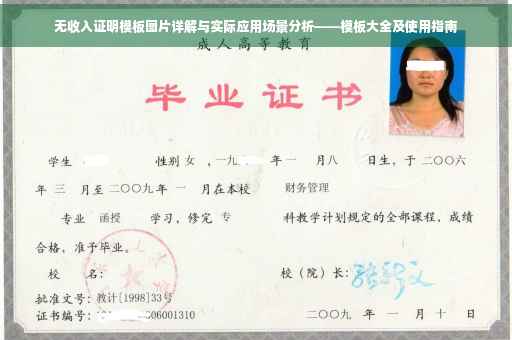 无收入证明模板图片详解与实际应用场景分析——模板大全及使用指南
成人高等教育
毕业证书
学生 性别 女 ，一九 年一 月八 日生，于二〇〇六
年 三 月至二〇〇九年 一 月在本校 财务管理
专业 函授 学习，修完 专 科教学计划规定的全部课程，成绩
合格，准予毕业。
校 名： 校（院）长：
批准文号：教计[1998]33号
证书编号： 06001310 二〇〇九 年 一 月 十 日